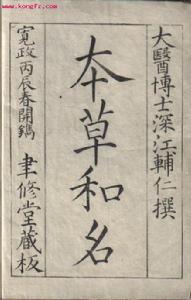 www.kongfz.com
大醫博士深江輔仁撰
本草和名
寬政丙辰春開鐫
聿修堂藏板